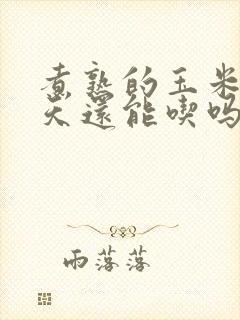 煮熟的玉米
天還能喫吗
雨落落